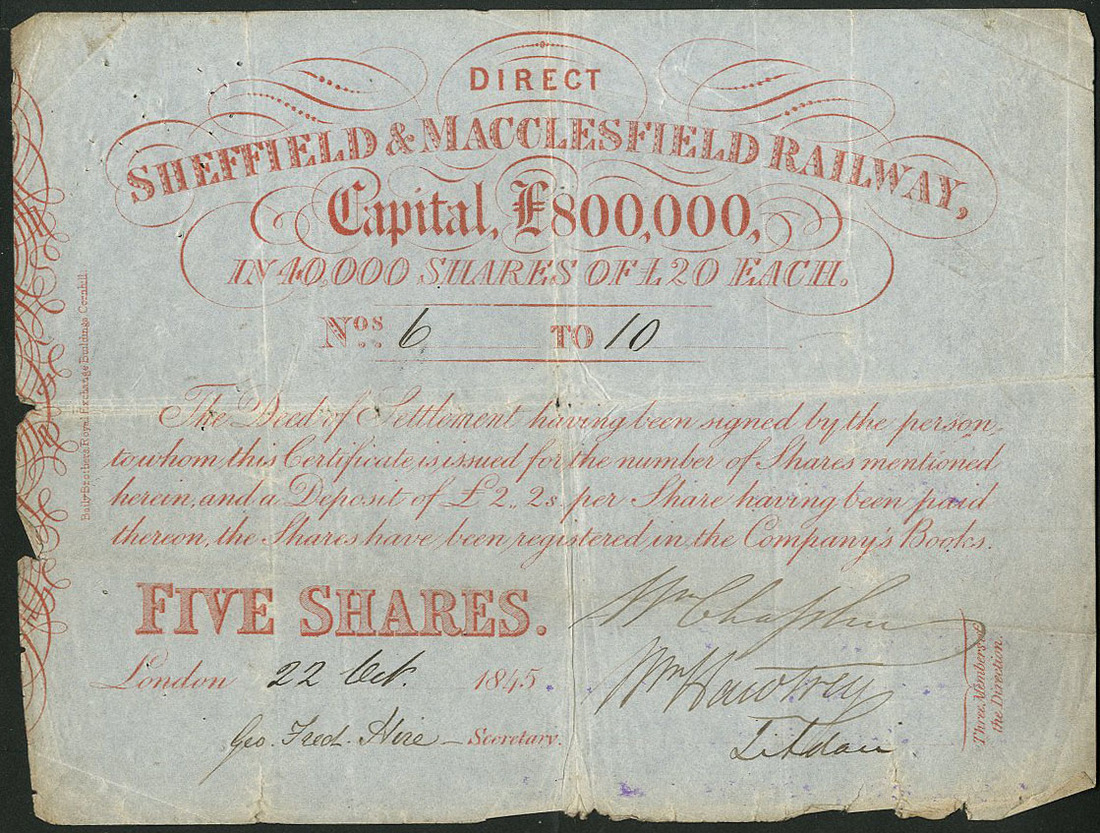 DIRECT
SHEFFIELD & MACCLESFIELD RAILWAY,
Capital, £800,000,
IN 40,000 SHARES OF £20 EACH.
Nos 6 TO 10
The Deed of Settlement having been signed by the person,
to whom this Certificate is issued for the number of Shares mentioned
herein, and a Deposit of £2,, 2s. per Share having been paid
thereon, the Shares have been registered in the Company's Books.
FIVE SHARES.
London 22 Oct. 1845.
Geo. Fred. Hire — Secretary.
Wm Chaplin
Wm Hawtrey
Three Members of
the Direction.
Baily Brothers, Royal Exchange Buildings Cornhill.